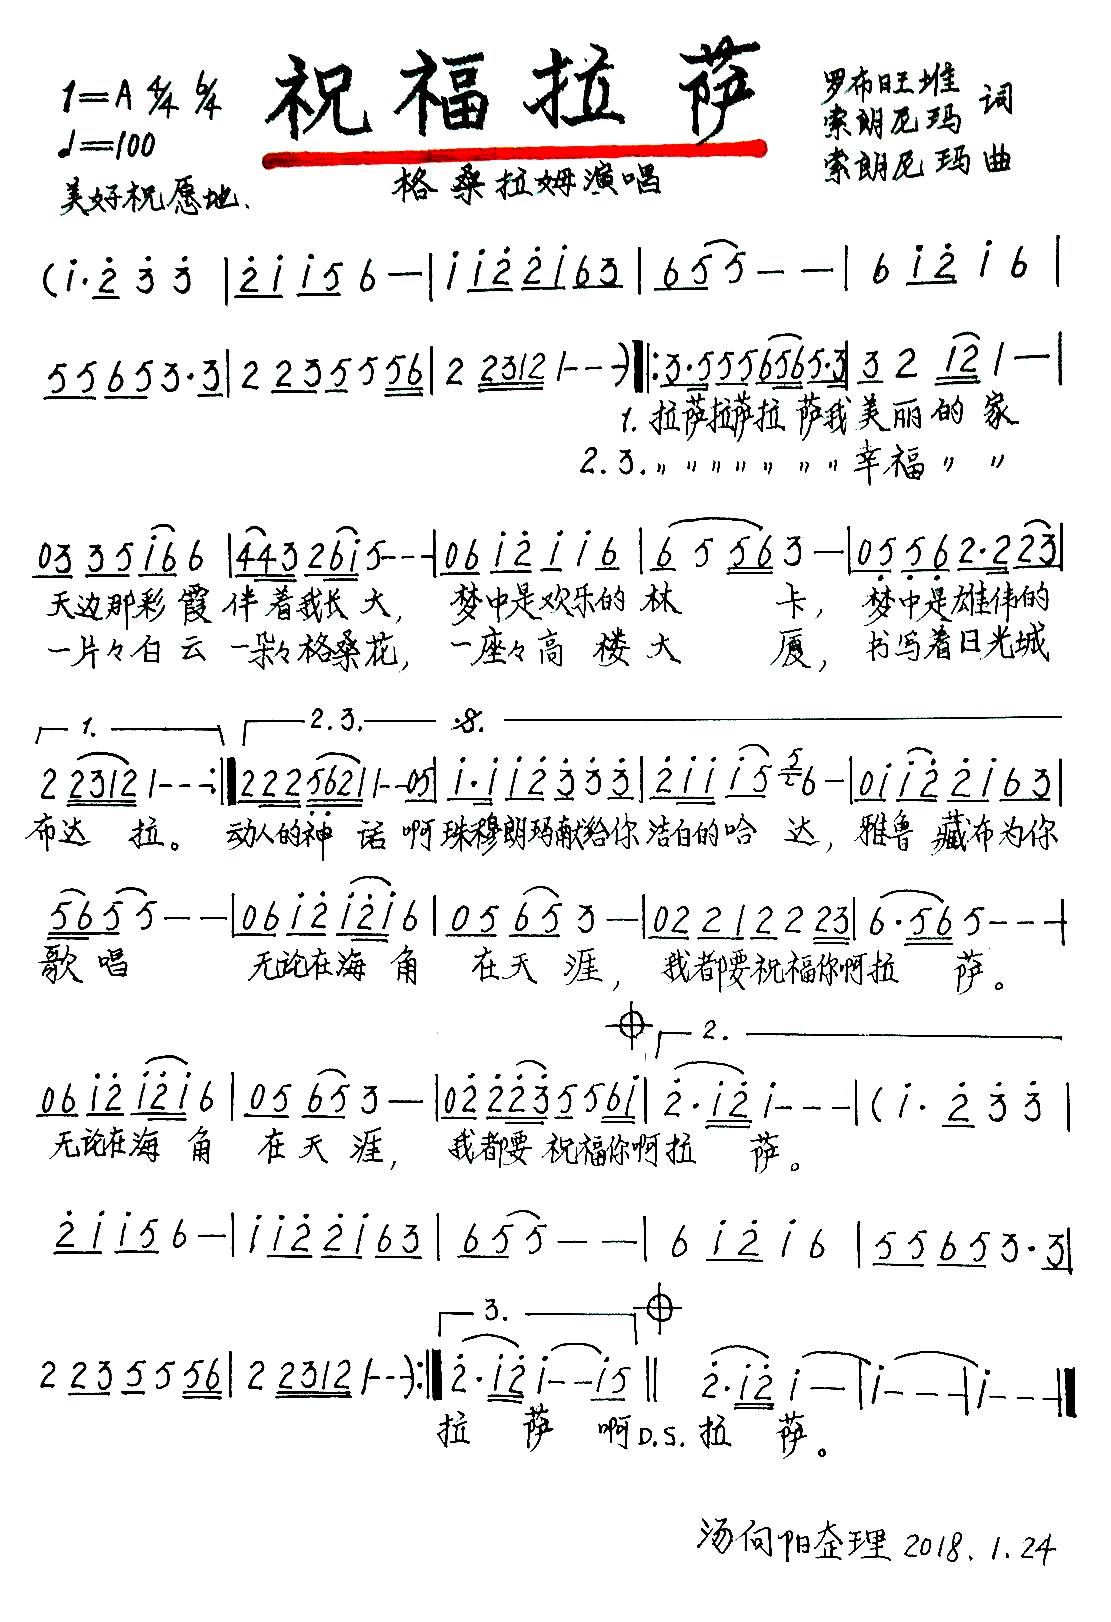 祝福拉萨
1=A 4/4 6/4
♩=100
美好祝愿地.
罗布旺堆
索朗尼玛 词
索朗尼玛 曲
格桑拉姆演唱
(i·2̇ 3̇ 3̇ | 2̇ i i 5 6 — | i i 2̇ 2̇ i 6 3 | 6 5 5 — — | 6 i 2̇ i 6 |
5 5 6 5 3·3 | 2 2 3 5 5 5 6 | 2 2 3 1 2 1 - - -) ‖: 3·5 5 5 6 5 6 5·3 | 3 2 1 2 1 — |
1. 拉萨拉萨拉 萨我 美 丽 的 家
2.3. 〃〃〃〃〃〃〃 幸 福 〃 〃
0 3 3 5 i 6 6 | 4 4 3 2 6 i 5 - - - | 0 6 i 2̇ i i 6 | 6 5 5 6 3 — | 0 5̣ 5̣ 6̣ 2·2 2 3 |
天边那彩霞 伴着我长大, 梦中是欢乐的林 卡, 梦中是雄伟的
一片々白云 一朵々格桑花, 一座々高楼大 厦, 书写着日光城
1. 2.3. 𝄋
2 2 3 1 2 1 - - - :‖ 2 2 2 5̣ 6̣ 2 1 1 - - 0 5 | i·i i 2̇ 3̇ 3̇ 3̇ | 2̇ i i i 5 5 6 — | 0 i i 2̇ 2̇ i 6 3 |
布达 拉。 动人的神 话 啊 珠穆朗玛献给你 洁白的哈 达, 雅鲁 藏布为你
5 6 5 5 — — | 0 6 i 2̇ i 2̇ i 6 | 0 5 6 5 3 — | 0 2 2 1 2 2 2 3 | 6·5 6 5 - - - |
歌 唱 无论在海 角 在天 涯, 我都要祝福你啊拉 萨。
2.
0 6 i 2̇ i 2̇ i 6 | 0 5 6 5 3 — | 0 2̇ 2̇ 2̇ 3̇ 5 5 6 i | 2̇·i 2̇ i - - - | (i· 2̇ 3̇ 3̇ |
无论在海 角 在天 涯, 我都要祝福你啊拉 萨。
2̇ i i 5 6 — | i i 2̇ 2̇ i 6 3 | 6 5 5 — — | 6 i 2̇ i 6 | 5 5 6 5 3·3 |
3.
2 2 3 5 5 5 6 | 2 2 3 1 2 1 - - -) :‖ 2̇·i 2̇ i - - i 5 ‖ 2̇·i 2̇ i — | i - - - | i - - - ‖
拉 萨 啊 D.S. 拉 萨。
汤向阳整理 2018.1.24